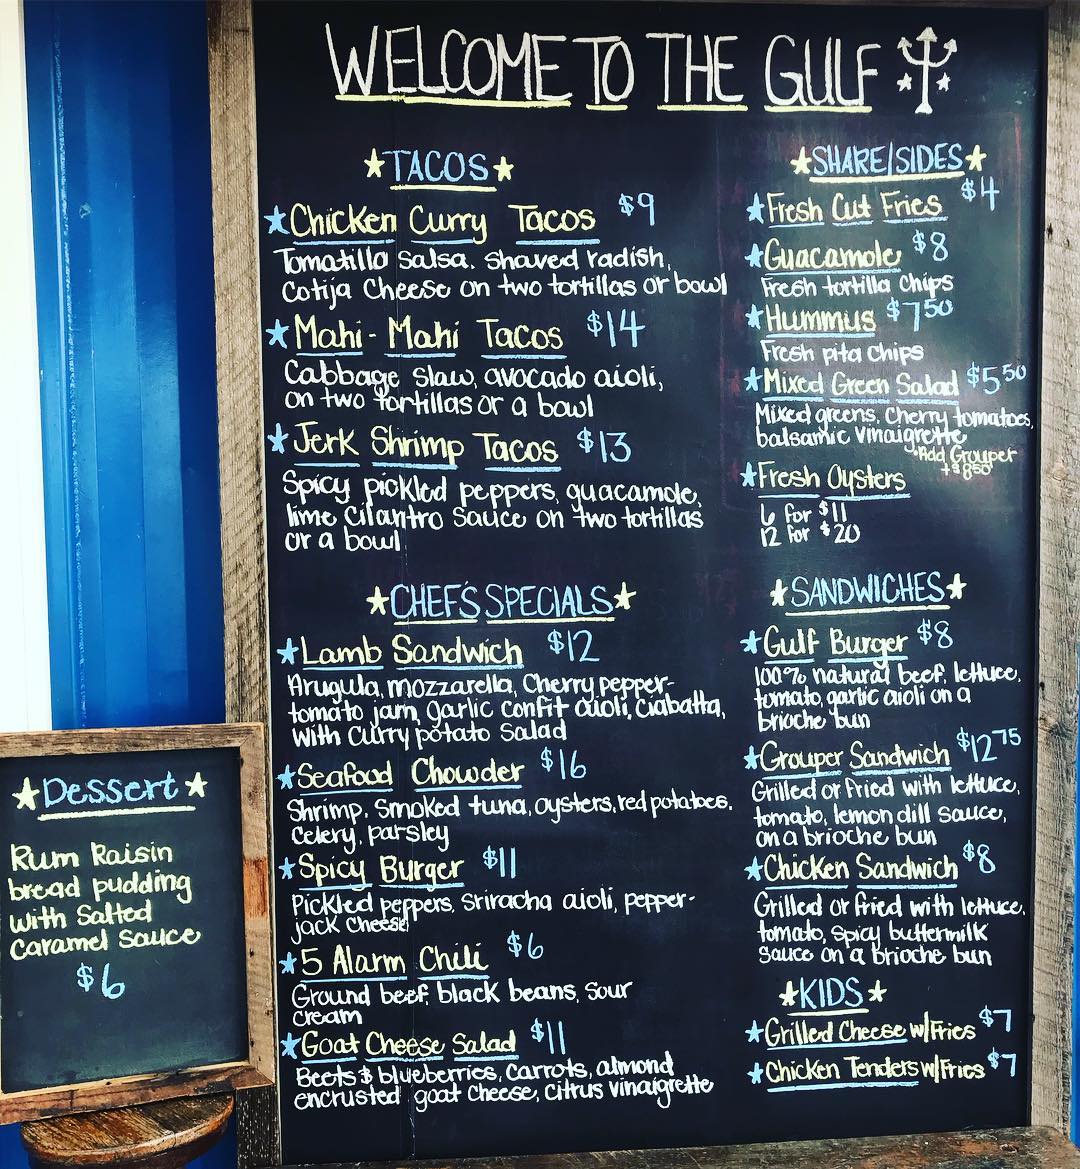 WELCOME TO THE GULF
TACOS
Chicken Curry Tacos $9
Tomatillo salsa. shaved radish,
Cotija Cheese on two tortillas or bowl
Mahi-Mahi Tacos $14
Cabbage Slaw, avocado aioli,
on two tortillas or a bowl
Jerk Shrimp Tacos $13
Spicy pickled peppers, guacamole,
lime Cilantro Sauce on two tortillas
or a bowl
CHEF'S SPECIALS
Lamb Sandwich $12
Arugula, mozzarella, Cherry pepper-
tomato jam, garlic confit aioli, Ciabatta,
with Curry potato Salad
Seafood Chowder $16
Shrimp, Smoked tuna, oysters, red potatoes,
Celery, parsley
Spicy Burger $11
Pickled peppers, Sriracha aioli, pepper-
jack Cheese
5 Alarm Chili $6
Ground beef, black beans, Sour
Cream
Goat Cheese Salad $11
Beets & blueberries, Carrots, almond
encrusted goat Cheese, Citrus Vinaigrette
SHARE/SIDES
Fresh Cut Fries $4
Guacamole $8
Fresh tortilla Chips
Hummus $7 50
Fresh pita Chips
Mixed Green Salad $5 50
Mixed greens, Cherry tomatoes,
balsamic Vinaigrette
*Add Grouper
+$8 50
Fresh Oysters
6 for $11
12 for $20
SANDWICHES
Gulf Burger $8
100% natural beef, lettuce,
tomato, garlic aioli on a
brioche bun
Grouper Sandwich $12 75
Grilled or Fried with lettuce,
tomato, lemon dill sauce,
on a brioche bun
Chicken Sandwich $8
Grilled or fried with lettuce,
tomato, spicy buttermilk
sauce on a brioche bun
KIDS
Grilled Cheese w/Fries $7
Chicken Tenders w/Fries $7
Dessert
Rum Raisin
bread pudding
with Salted
Caramel Sauce
$6